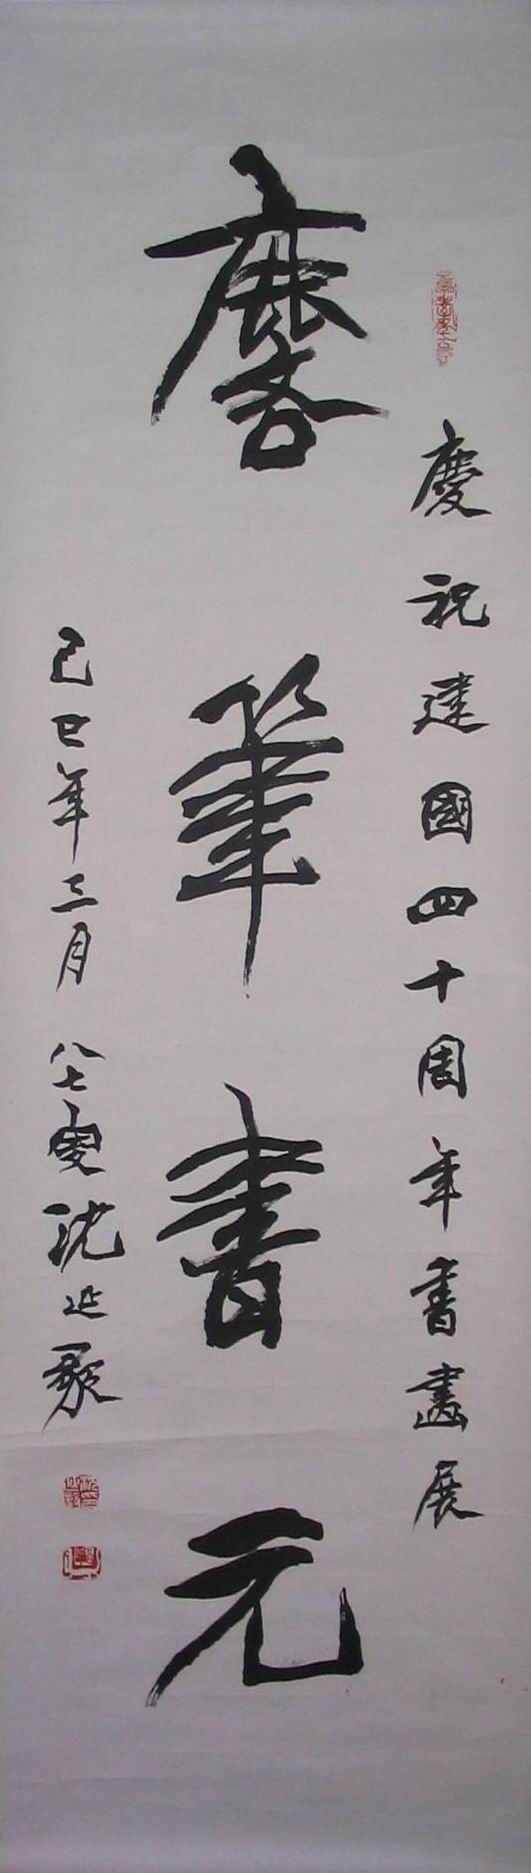 慶祝建國四十周年書畫展
麐筆書元
己巳年三月 八七叟沈延毅